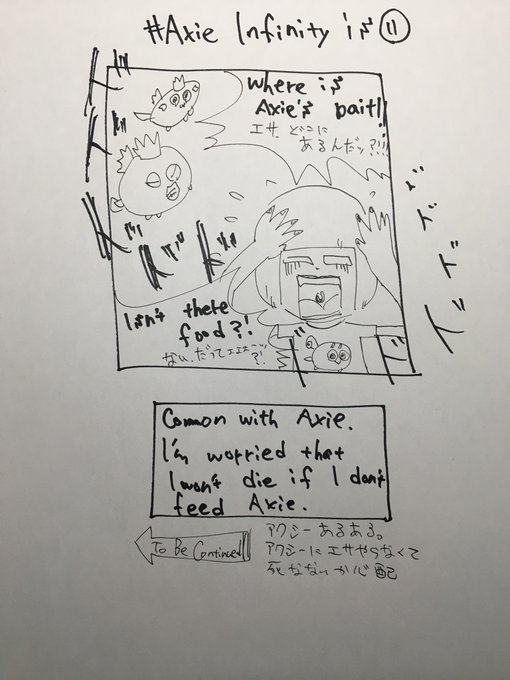 #Axie Infinity is ⑪
Where is
Axie's bait!!
エサ どこに
あるんだッ?!!!
ド ド ド ド
ド ド ド
ド ド ド ド
Isn't there
food?!
ない、だってエエエーッ?!
ド ド
Common with Axie.
I'm worried that
I won't die if I don't
feed Axie.
To Be Continued
アクシーあるある。
アクシーにエサやらなくて
死なないか心配